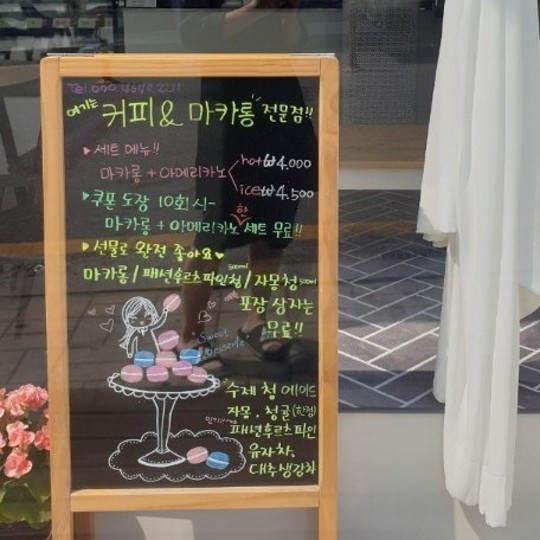 여기는 커피 & 마카롱 전문점!!
▶ 세트 메뉴!!
마카롱 + 아메리카노
hot ₩4.000
ice ₩4.500
▶ 쿠폰 도장 10회 시~
마카롱 + 아메리카노 한 세트 무료!!
▶ 선물로 완전 좋아요♥
마카롱 / 패션후르츠파인청 500ml / 자몽청 500ml
포장 상자는
무료!!
"Sweet
수제 청 에이드
자몽. 청귤(한정)
패션후르츠파인
유자차,
대추생강차